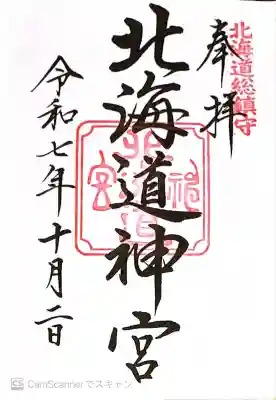 北海道総鎮守
奉拝
北海道神宮
令和七年十月二日
CS CamScannerでスキャン